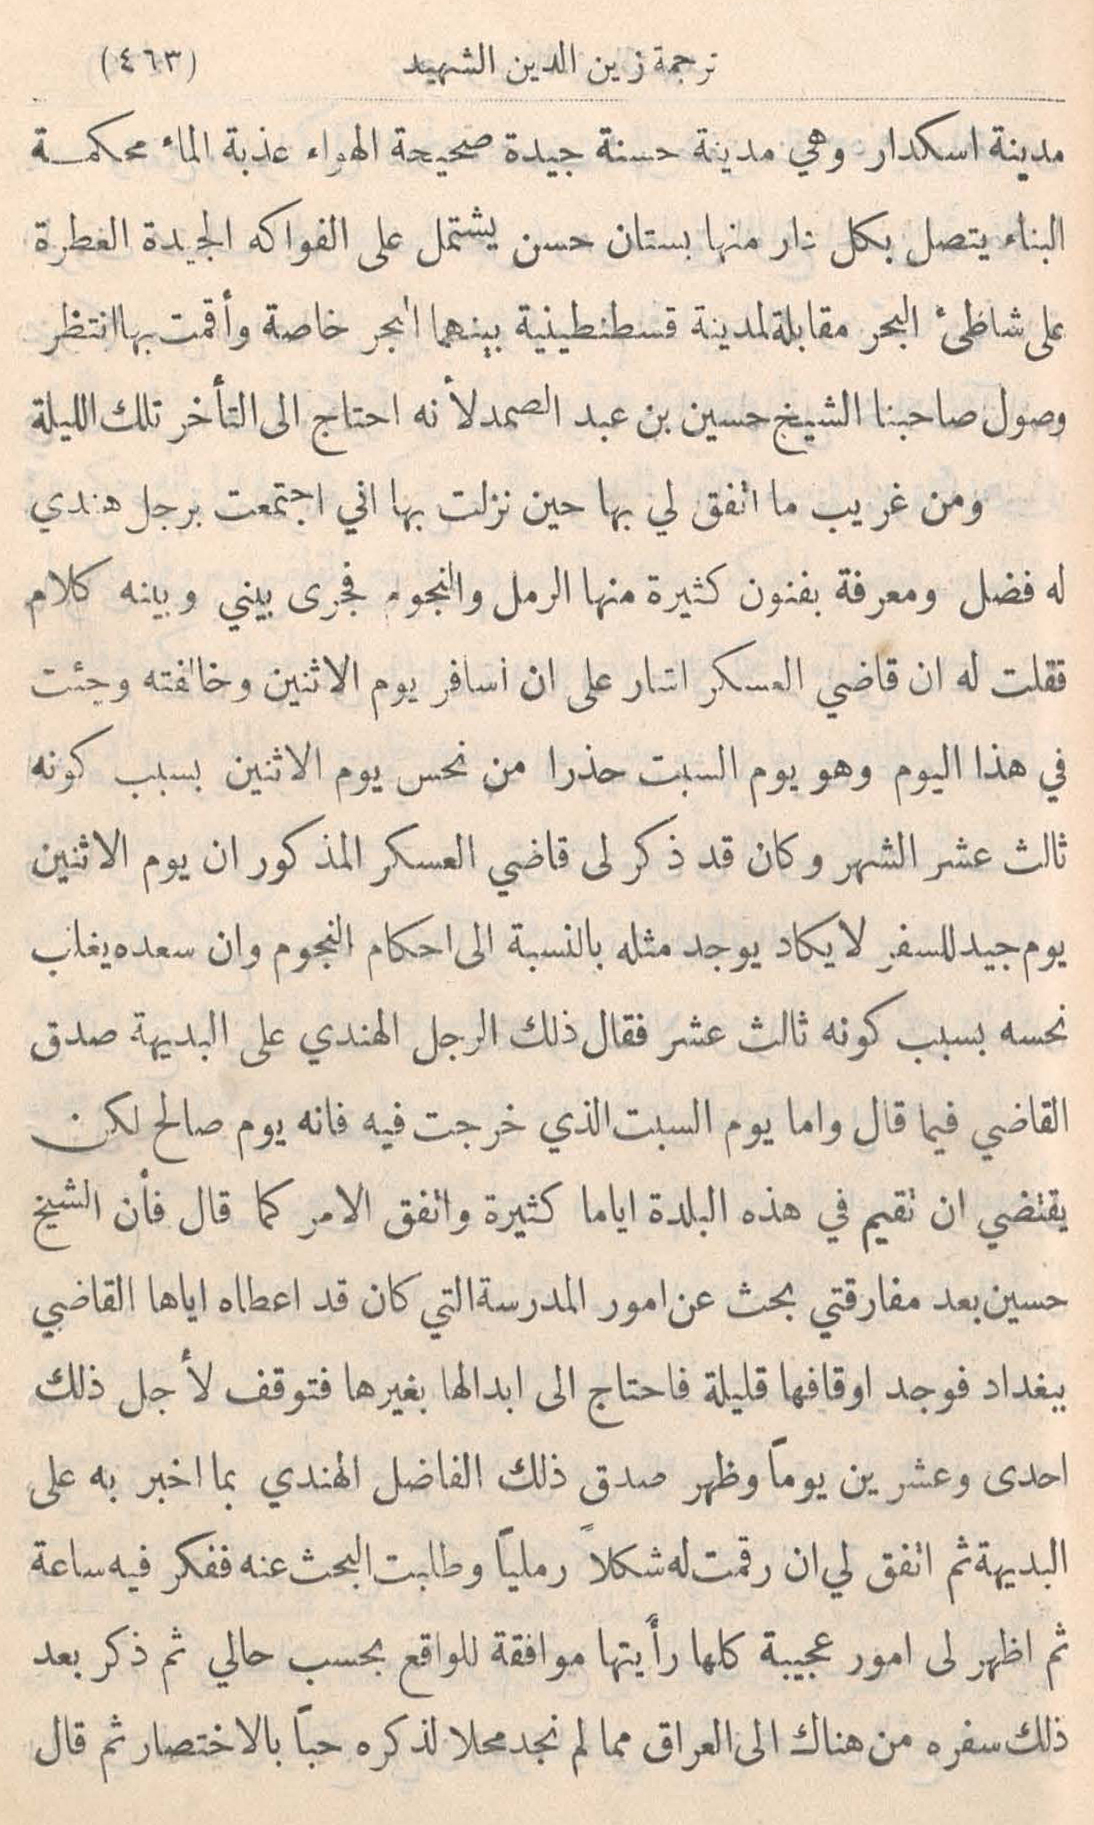 ترجمة زين الدين الشهيد (٤٦٣)
مدينة اسكدار وهي مدينة حسنة جيدة صحيحة الهواء عذبة الماء محكمة
البناء يتصل بكل دار منها بستان حسن يشتمل على الفواكه الجيدة العطرة
على شاطئ البحر مقابلة لمدينة قسطنطينية بينهما البحر خاصة وأقمت بها انتظر
وصول صاحبنا الشيخ حسين بن عبد الصمد لأنه احتاج الى التأخر تلك الليلة
ومن غريب ما اتفق لي بها حين نزلت بها اني اجتمعت برجل هندي
له فضل ومعرفة بفنون كثيرة منها الرمل والنجوم فجرى بيني وبينه كلام
فقلت له ان قاضي العسكر اشار على ان أسافر يوم الاثنين وخالفته وجئت
في هذا اليوم وهو يوم السبت حذرا من نحس يوم الاثنين بسبب كونه
ثالث عشر الشهر وكان قد ذكر لى قاضي العسكر المذكور ان يوم الاثنين
يوم جيد للسفر لا يكاد يوجد مثله بالنسبة الى احكام النجوم وان سعده يغلب
نحسه بسبب كونه ثالث عشر فقال ذلك الرجل الهندي على البديهة صدق
القاضي فيما قال واما يوم السبت الذي خرجت فيه فانه يوم صالح لكن
يقتضي ان تقيم في هذه البلدة اياما كثيرة واتفق الامر كما قال فأن الشيخ
حسين بعد مفارقتي بحث عن امور المدرسة التي كان قد اعطاه اياها القاضي
ببغداد فوجد اوقافها قليلة فاحتاج الى ابدالها بغيرها فتوقف لأجل ذلك
احدى وعشرين يوماً وظهر صدق ذلك الفاضل الهندي بما اخبر به على
البديهة ثم اتفق لي ان رقمت له شكلاً رملياً وطلبت البحث عنه ففكر فيه ساعة
ثم اظهر لى امور عجيبة كلها رأيتها موافقة للواقع بحسب حالي ثم ذكر بعد
ذلك سفره من هناك الى العراق مما لم نجد محلا لذكره حباً بالاختصار ثم قال